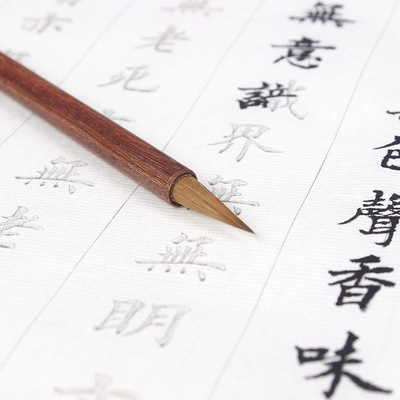 色聲香味
無意識界無無明
無老死無老
亦